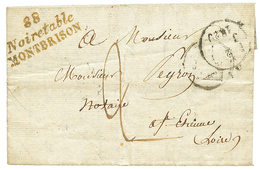 88
Noiretable
MONTBRISON
A Monsieur
Monsieur Peyron
Notaire
2
a St. Etienne
(Loire)